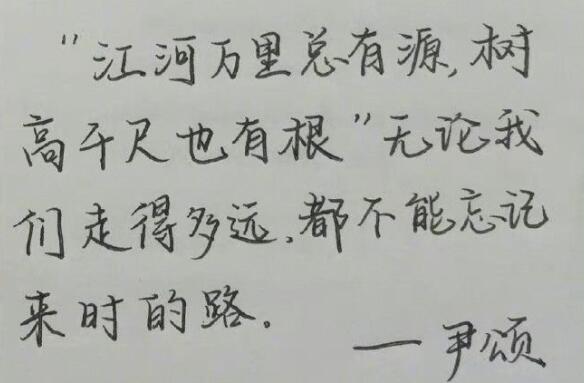 "江河万里总有源,树
高千尺也有根"无论我
们走得多远,都不能忘记
来时的路。
——尹颂